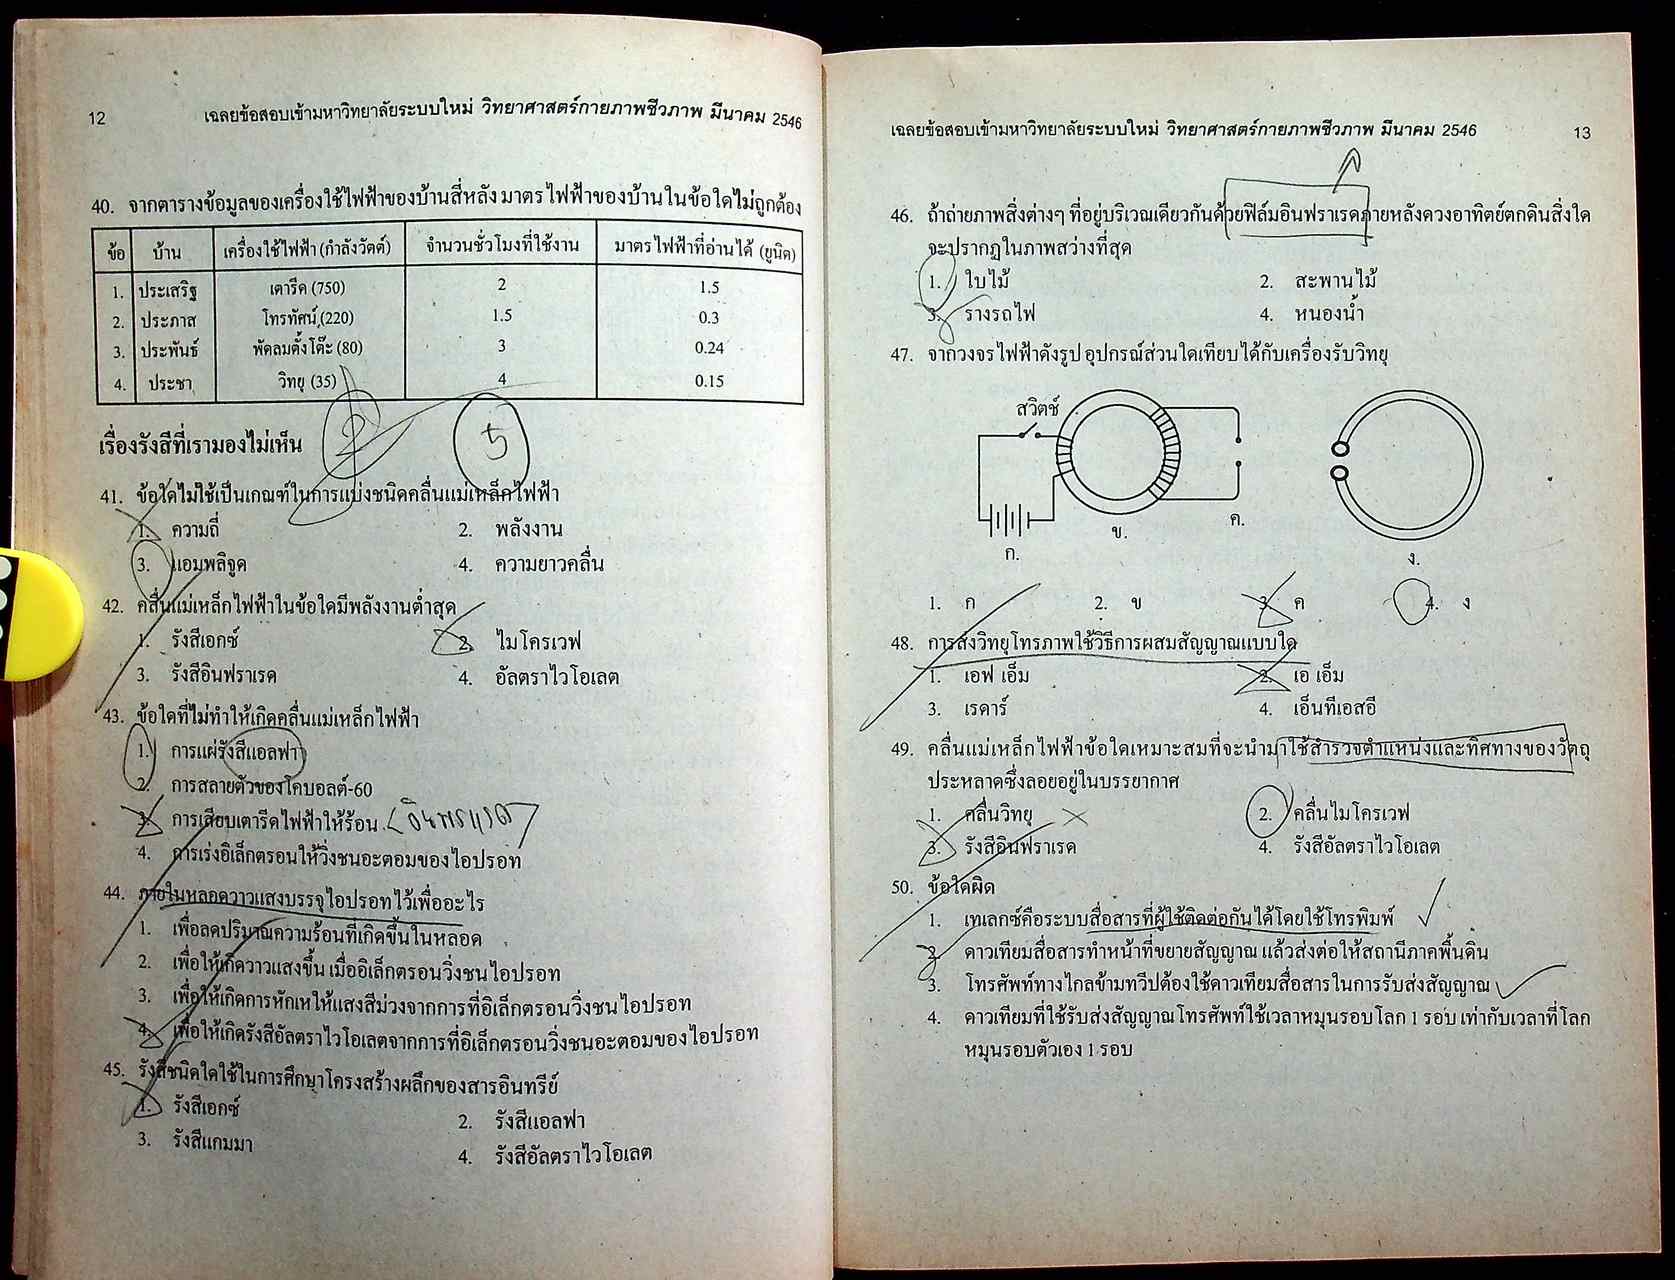 12
เฉลยข้อสอบเข้ามหาวิทยาลัยระบบใหม่ วิทยาศาสตร์กายภาพชีวภาพ มีนาคม 2546
40. จากตารางข้อมูลของเครื่องใช้ไฟฟ้าของบ้านสี่หลัง มาตรไฟฟ้าของบ้านในข้อใดไม่ถูกต้อง
ข้อ บ้าน เครื่องใช้ไฟฟ้า (กำลังวัตต์) จำนวนชั่วโมงที่ใช้งาน มาตรไฟฟ้าที่อ่านได้ (ยูนิต)
1. ประเสริฐ เตารีด (750) 2 1.5
2. ประภาส โทรทัศน์ (220) 1.5 0.3
3. ประพันธ์ พัดลมตั้งโต๊ะ (80) 3 0.24
4. ประชา วิทยุ (35) 4 0.15
2 5
เรื่องรังสีที่เรามองไม่เห็น
41. ข้อใดไม่ใช้เป็นเกณฑ์ในการแบ่งชนิดคลื่นแม่เหล็กไฟฟ้า
1. ความถี่ 2. พลังงาน
3. แอมพลิจูด 4. ความยาวคลื่น
42. คลื่นแม่เหล็กไฟฟ้าในข้อใดมีพลังงานต่ำสุด
1. รังสีเอกซ์ 2. ไมโครเวฟ
3. รังสีอินฟราเรด 4. อัลตราไวโอเลต
43. ข้อใดที่ไม่ทำให้เกิดคลื่นแม่เหล็กไฟฟ้า
1. การแผ่รังสีแอลฟา
2. การสลายตัวของโคบอลต์-60
3. การเสียบเตารีดไฟฟ้าให้ร้อน
4. การเร่งอิเล็กตรอนให้วิ่งชนอะตอมของไอปรอท
44. ภายในหลอดวาวแสงบรรจุไอปรอทไว้เพื่ออะไร
1. เพื่อลดปริมาณความร้อนที่เกิดขึ้นในหลอด
2. เพื่อให้เกิดวาวแสงขึ้น เมื่ออิเล็กตรอนวิ่งชนไอปรอท
3. เพื่อให้เกิดการหักเหให้แสงสีม่วงจากการที่อิเล็กตรอนวิ่งชนไอปรอท
4. เพื่อให้เกิดรังสีอัลตราไวโอเลตจากการที่อิเล็กตรอนวิ่งชนอะตอมของไอปรอท
45. รังสีชนิดใดใช้ในการศึกษาโครงสร้างผลึกของสารอินทรีย์
1. รังสีเอกซ์ 2. รังสีแอลฟา
3. รังสีแกมมา 4. รังสีอัลตราไวโอเลต
เฉลยข้อสอบเข้ามหาวิทยาลัยระบบใหม่ วิทยาศาสตร์กายภาพชีวภาพ มีนาคม 2546
13
46. ถ้าถ่ายภาพสิ่งต่างๆ ที่อยู่บริเวณเดียวกันด้วยฟิล์มอินฟราเรดภายหลังดวงอาทิตย์ตกดินสิ่งใด
จะปรากฏในภาพสว่างที่สุด
1. ใบไม้ 2. สะพานไม้
3. รางรถไฟ 4. หนองน้ำ
47. จากวงจรไฟฟ้าดังรูป อุปกรณ์ส่วนใดเทียบได้กับเครื่องรับวิทยุ
สวิตช์
ก. ข. ค. ง.
1. ก 2. ข 3. ค 4. ง
48. การส่งวิทยุโทรภาพใช้วิธีการผสมสัญญาณแบบใด
1. เอฟ เอ็ม 2. เอ เอ็ม
3. เรดาร์ 4. เอ็นทีเอสอี
49. คลื่นแม่เหล็กไฟฟ้าข้อใดเหมาะสมที่จะนำมาใช้สำรวจตำแหน่งและทิศทางของวัตถุ
ประหลาดซึ่งลอยอยู่ในบรรยากาศ
1. คลื่นวิทยุ 2. คลื่นไมโครเวฟ
3. รังสีอินฟราเรด 4. รังสีอัลตราไวโอเลต
50. ข้อใดผิด
1. เทเลกซ์คือระบบสื่อสารที่ผู้ใช้ติดต่อกันได้โดยใช้โทรพิมพ์
2. ดาวเทียมสื่อสารทำหน้าที่ขยายสัญญาณ แล้วส่งต่อให้สถานีภาคพื้นดิน
3. โทรศัพท์ทางไกลข้ามทวีปต้องใช้ดาวเทียมสื่อสารในการรับส่งสัญญาณ
4. ดาวเทียมที่ใช้รับส่งสัญญาณโทรศัพท์ใช้เวลาหมุนรอบโลก 1 รอบ เท่ากับเวลาที่โลก
หมุนรอบตัวเอง 1 รอบ